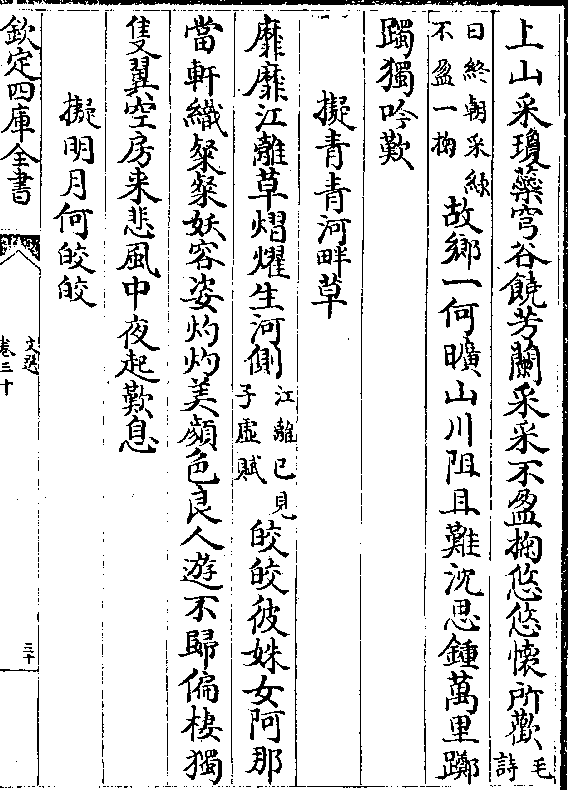 上山采瓊蘂穹谷饒芳蘭采采不盈掬悠悠懷所歡毛詩
曰終朝采綠不盈一掬故鄉一何曠山川阻且難沈思鍾萬里躑
躅獨吟歎
擬青青河畔草
靡靡江離草熠燿生河側江離已見子虛賦皎皎彼姝女阿那
當軒織粲粲妖容姿灼灼美顔色良人遊不歸偏棲獨
隻翼空房来悲風中夜起歎息
擬明月何皎皎
欽定四庫全書
文選
卷三十
三十